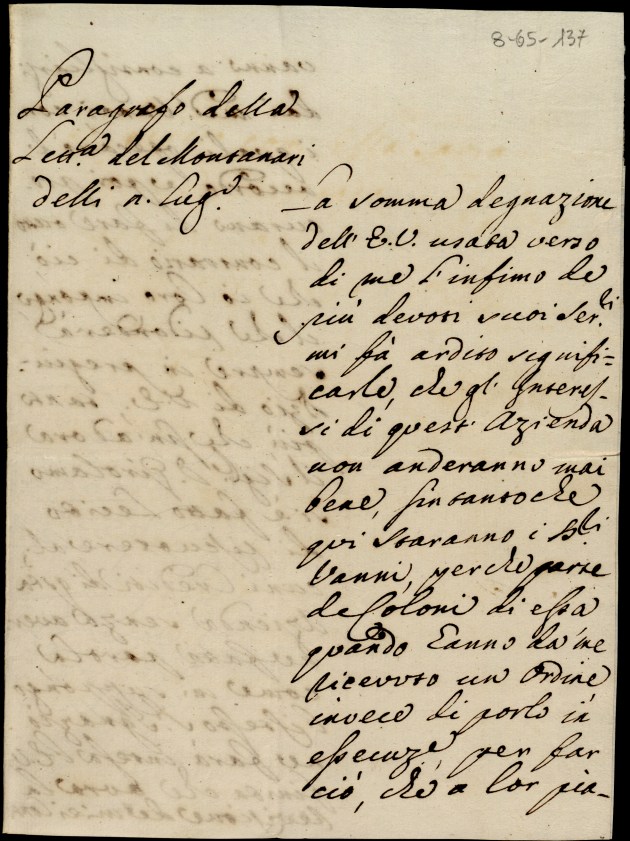 8-65-137
Paragrafo della
Lettra. del Montanari
delli 11. Lugo.
La somma degnazione
dell' E.V. usata verso
di me l'infimo de
più devoti suoi Serli.
mi fà ardito signifi=
carle, che gl' Interes-
si di quest' Azienda
non anderanno mai
bene, sintantoche
qui staranno i Sli.
Vanni, perche parte
de Coloni di essa
quando hanno da me
ricevuto un Ordine
invece di porlo in
essecuze, per far
ciò, che a lor pia-